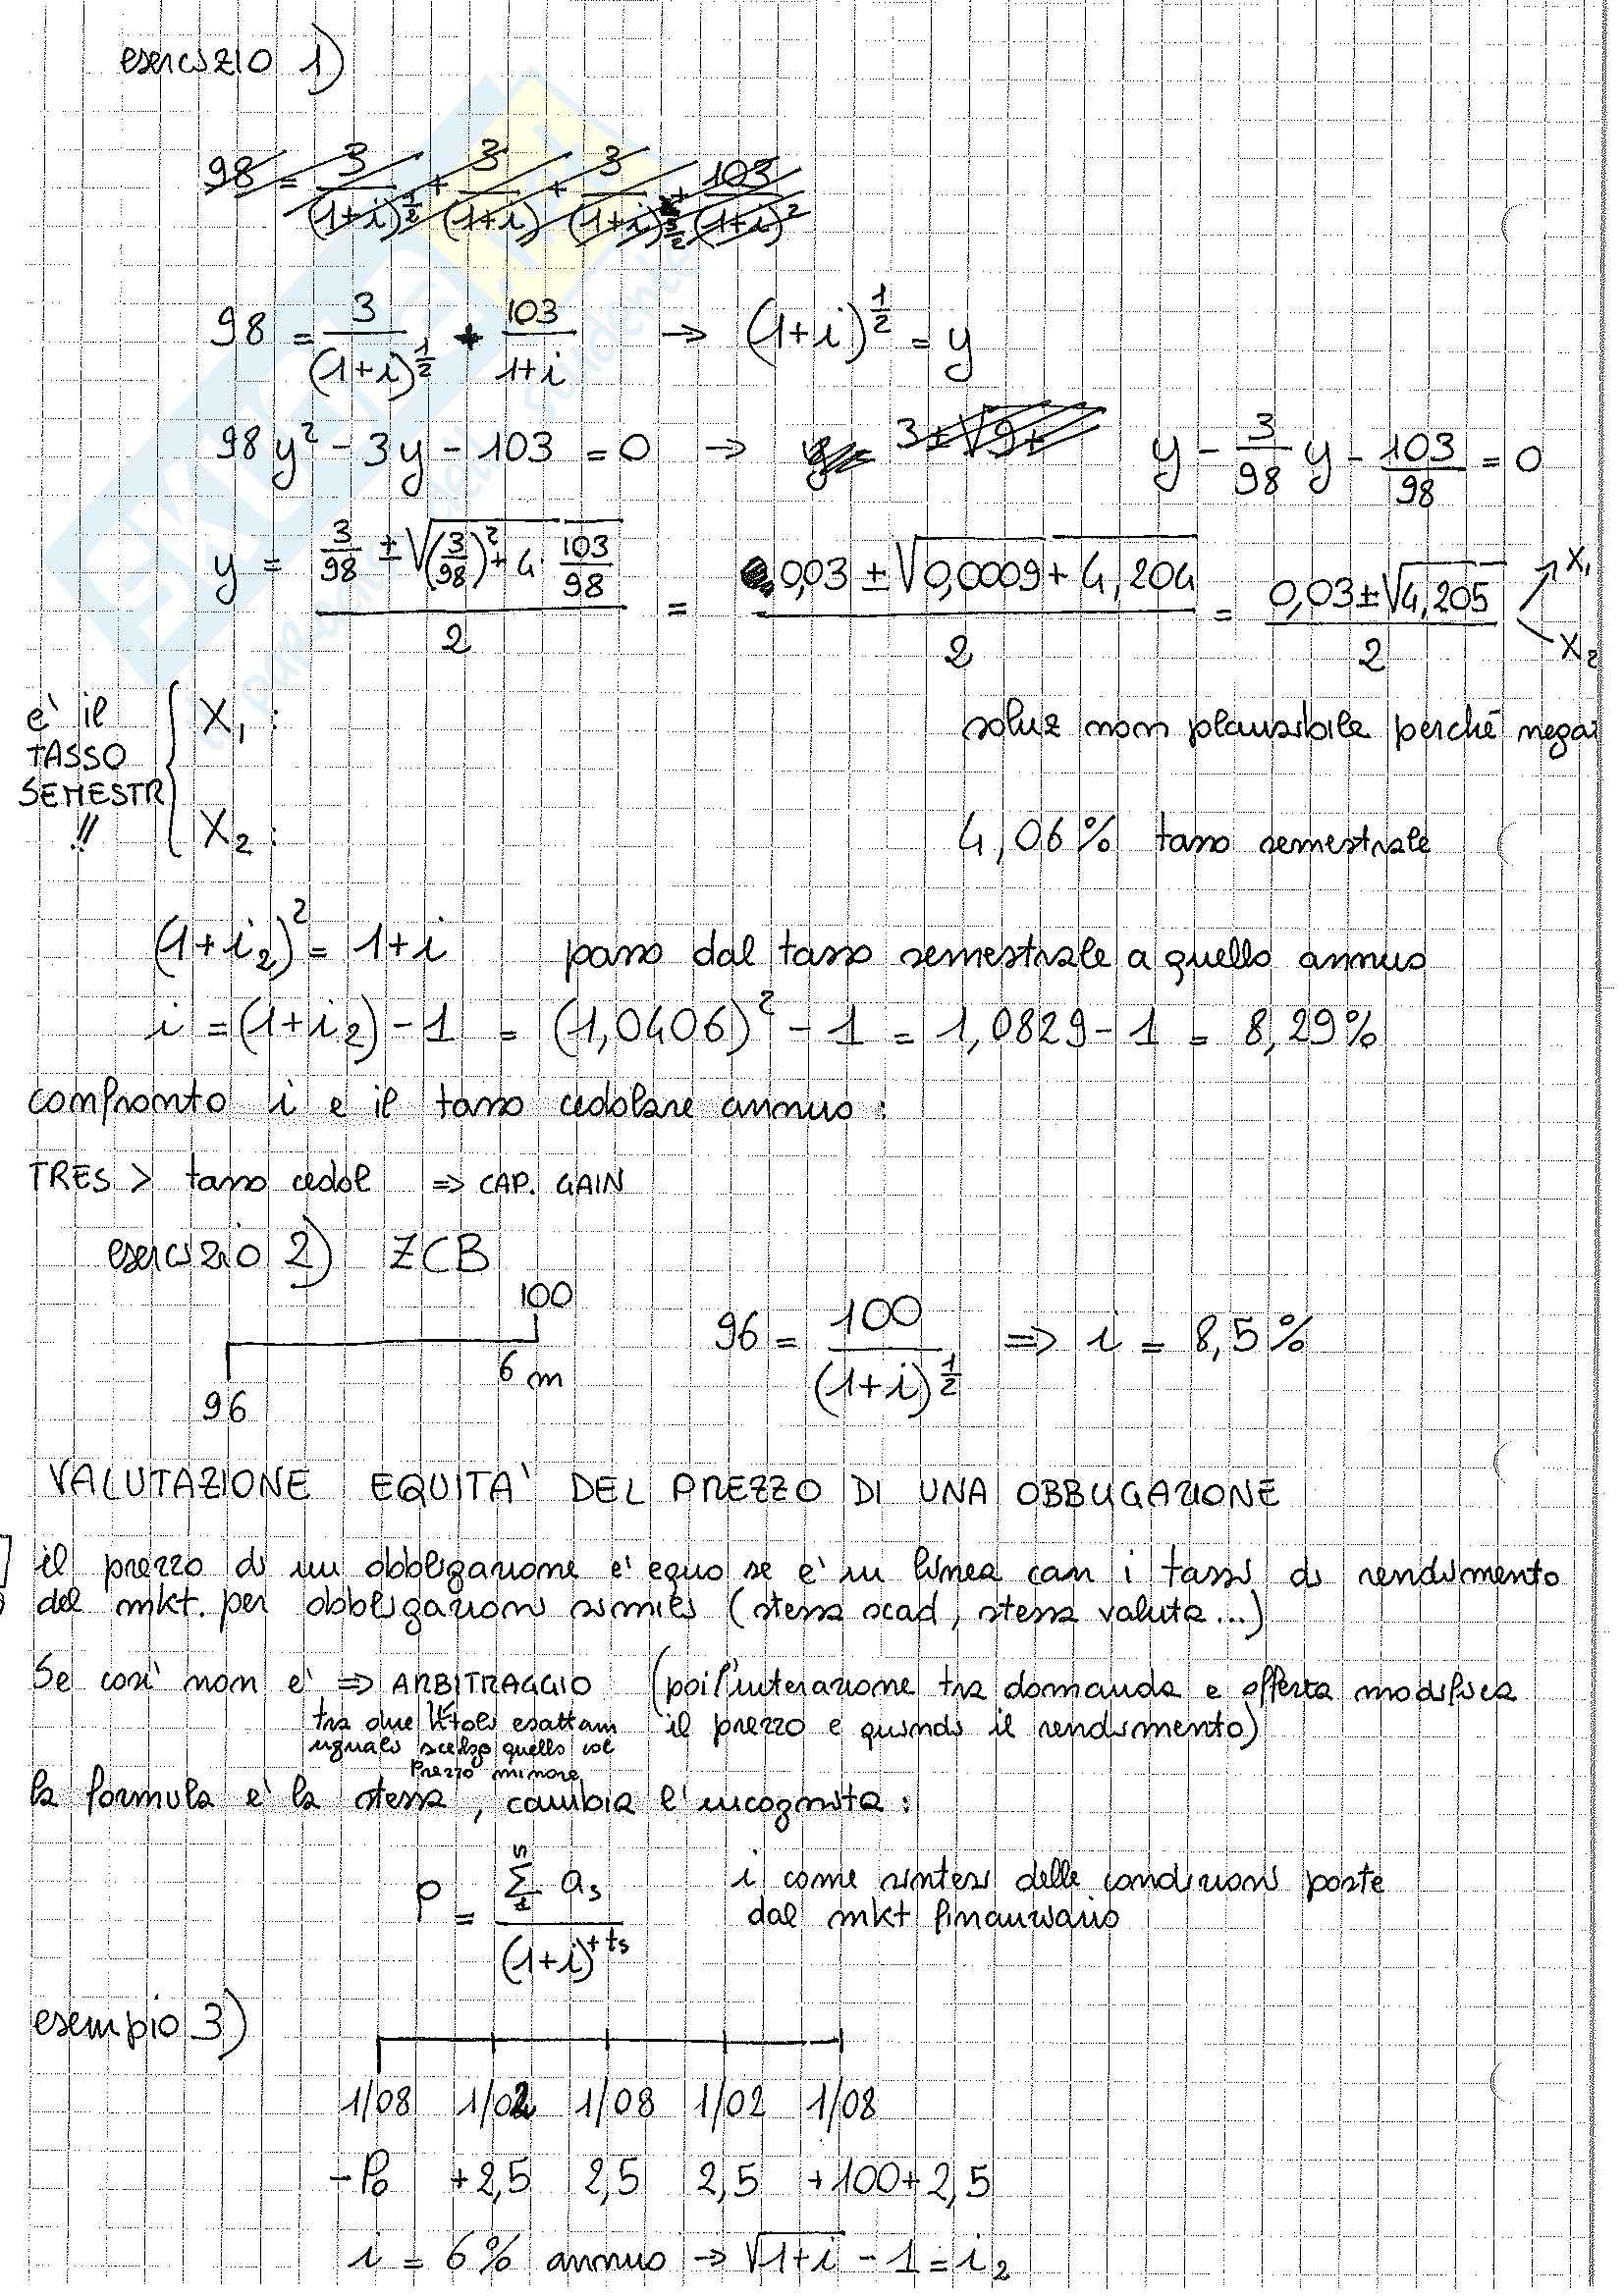 esercizio 1)
98 = 3/(1+i)^½ + 3/(1+i) + 3/(1+i)^3/2 + 103/(1+i)²
98 = 3/(1+i)^½ + 103/1+i → (1+i)^½ = y
98y² - 3y - 103 = 0 → y = 3±√9+ y - 3/98 y - 103/98 = 0
y = (3/98 ± √(3/98)² + 4 · 103/98)/2 = (0,03 ± √0,0009 + 4,204)/2 = (0,03 ± √4,205)/2 X₁ X₂
e' il TASSO SEMESTR !!
X₁ : soluz non plausibile perché negat
X₂ : 4,06% tasso semestrale
(1+i₂)² = 1+i passo dal tasso semestrale a quello annuo
i = (1+i₂) - 1 = (1,0406)² - 1 = 1,0829 - 1 = 8,29%
confronto i e il tasso cedolare annuo:
TRES > tasso cedol ⇒ CAP. GAIN
esercizio 2) ZCB
100
96 = 100/(1+i)^½ ⇒ i = 8,5%
6 m
96
VALUTAZIONE EQUITA' DEL PREZZO DI UNA OBBLIGAZIONE
il prezzo di un obbligazione e' equo se e' in linea con i tassi di rendimento
del mkt. per obbligazioni simili (stessa scad, stessa valuta...)
Se cosi' non e' ⇒ ARBITRAGGIO (poi l'interazione tra domanda e offerta modifica
tra due titoli esattam il prezzo e quindi il rendimento)
uguali scelgo quello col
prezzo minore
la formula e' la stessa, cambia l'incognita:
P = Σ aₛ/(1+i)^+tₛ i come sintesi delle condizioni poste
dal mkt finanziario
esempio 3)
1/08 1/02 1/08 1/02 1/08
-P₀ +2,5 2,5 2,5 +100+2,5
i = 6% annuo → √1+i - 1 = i₂